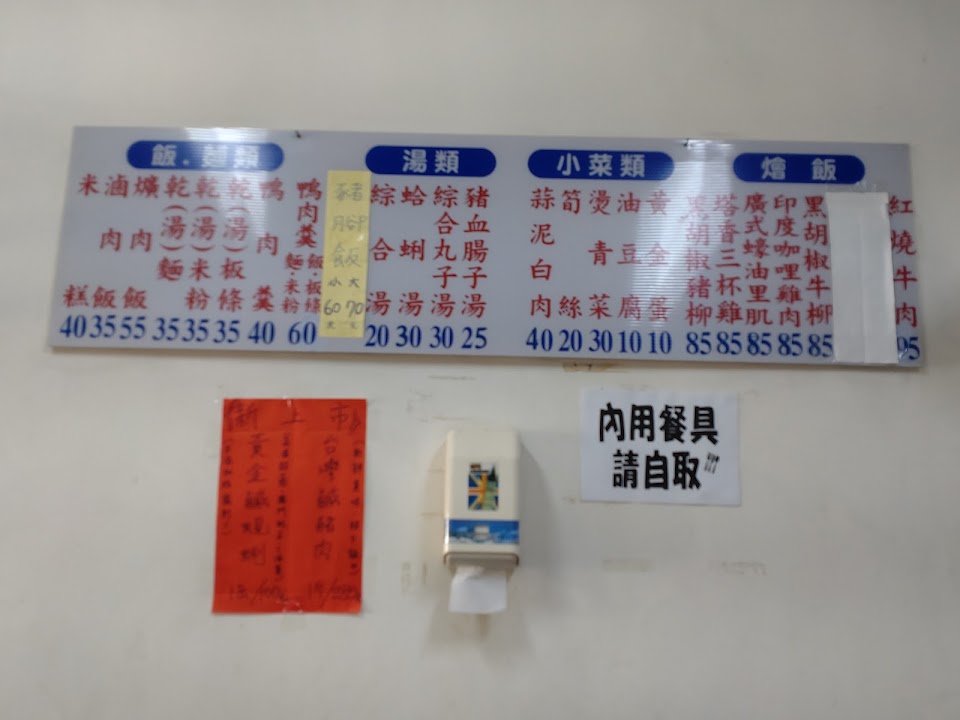 飯．麵類
米糕 40
滷肉飯 35
爌肉飯 55
乾(湯)麵 35
乾(湯)米粉 35
乾(湯)板條 35
鴨肉羹 40
鴨肉羹 麵·米粉 飯·板條 60
豬腳飯 小60元 大70元
湯類
綜合湯 20
蛤蜊湯 30
綜合丸子湯 30
豬血腸子湯 25
小菜類
蒜泥白肉 40
筍絲 20
燙青菜 30
油豆腐 10
黃金蛋 10
燴飯
黑胡椒豬柳 85
塔香三杯雞 85
廣式蠔油里肌 85
印度咖哩雞肉 85
黑胡椒牛柳 85
紅燒牛肉 95
新上市
台灣鹹豬肉
黃金鹹蜆蜊
內用餐具
請自取